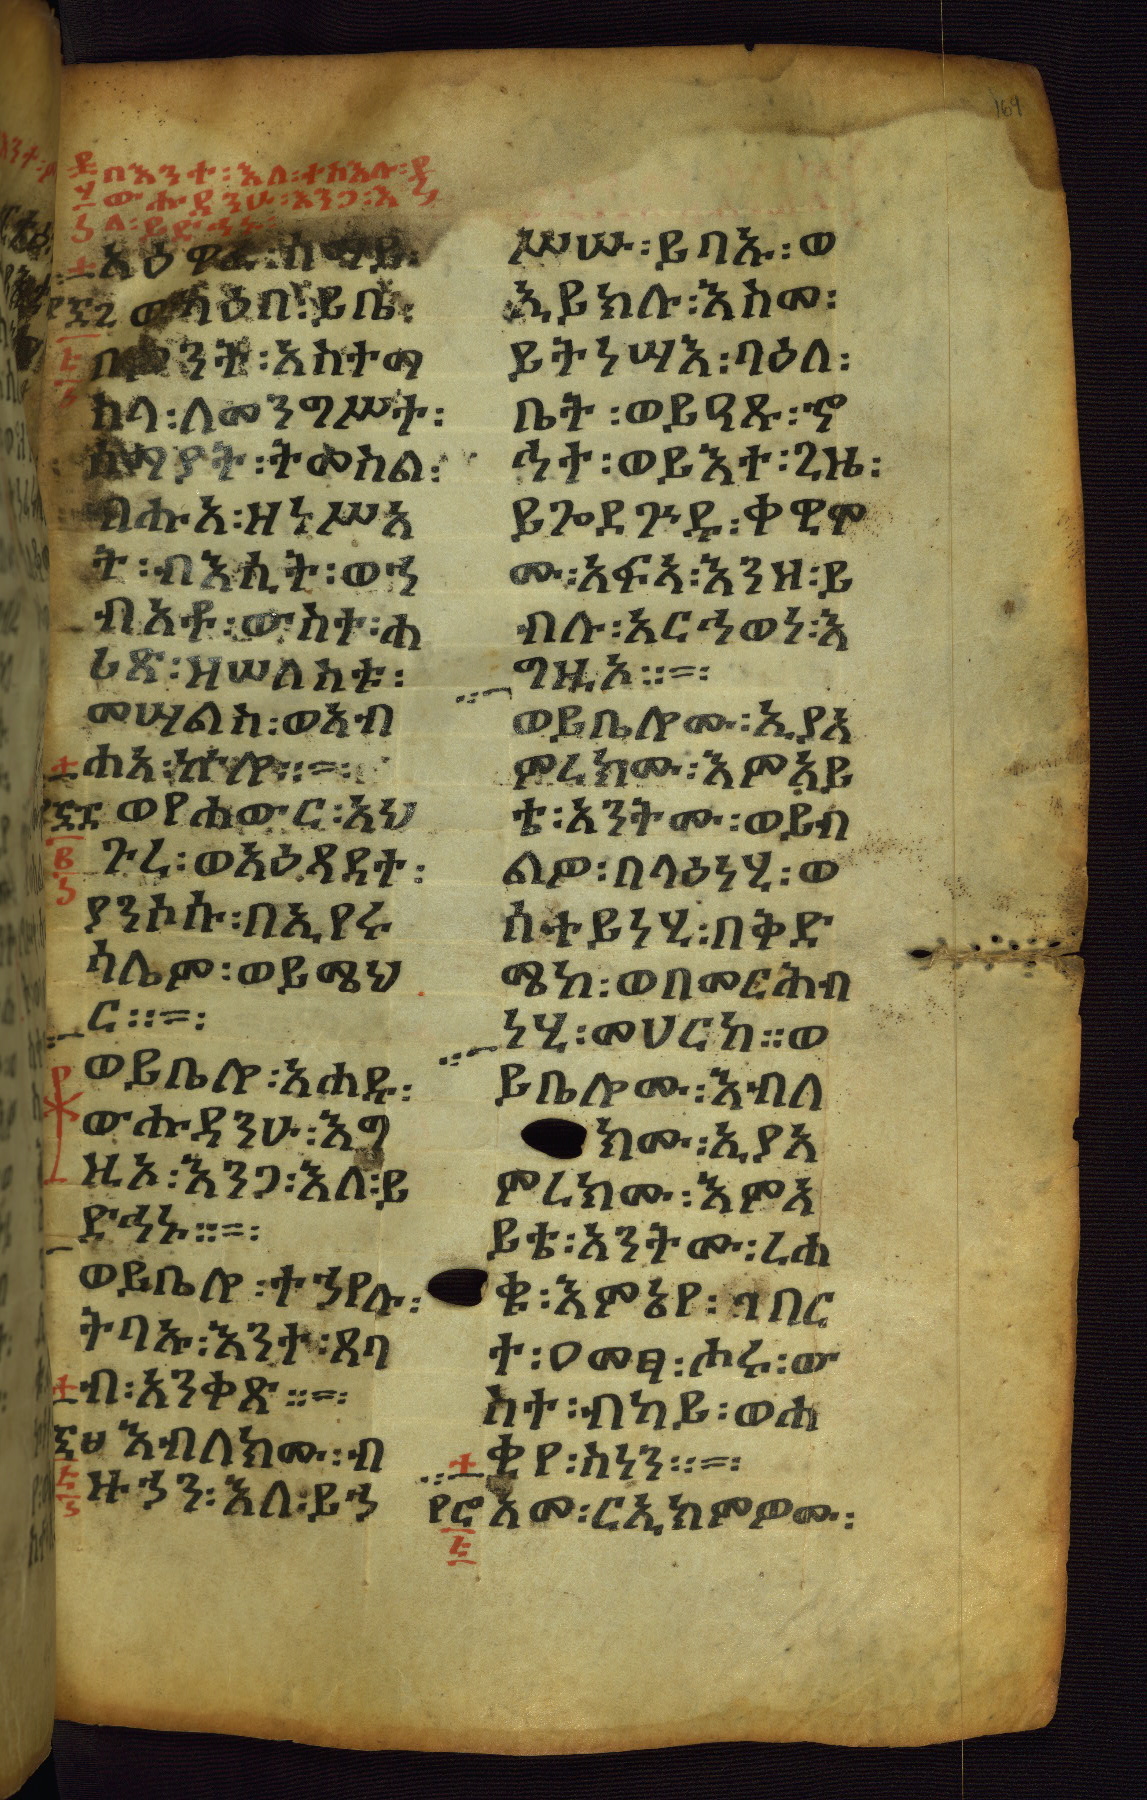 164
በእንተ፡እለ፡ተስእሉ፡
ውሑዳንሁ፡እንጋ፡እ
ለ፡ይድኅኑ
አዕዋፈ፡ሰማይ፡
ወካዕበ፡ይቤ፡
በምንት፡አስተማ
ስላ፡ለመንግሥት፡
ሰማያት፡ትመስል፡
ብሑአ፡ዘነሥአ
ት፡ብእሲት፡ወኀ
ብአቶ፡ውስተ፡ሐ
ሪጽ፡ዘሠለስቱ፡
መሣልስ፡ወአብ
ሐአ፡ኵሎ፡፡=፡
ወየሐውር፡አህ
ጉረ፡ወአዕጻዳት፡
ያንሶሱ፡በኢየሩ
ሳሌም፡ወይሜህ
ር፡፡=፡
ወይቤሎ፡አሐዱ፡
ውሑዳንሁ፡እግ
ዚኦ፡እንጋ፡እለ፡ይ
ድኅኑ፡፡=፡
ወይቤሎ፡ተኀየሉ፡
ትባኡ፡እንተ፡ጸባ
ብ፡አንቀጽ፡፡=፡
እብለክሙ፡ብ
ዙኃን፡እለ፡ይኀ
ሥሡ፡ይባኡ፡ወ
ኢይክሉ፡እስመ፡
ይትነሣእ፡ባዕለ፡
ቤት፡ወይዓጹ፡ኆ
ኅተ፡ወይእተ፡ጊዜ፡
ይጐደጕዱ፡ቀዊሞ
ሙ፡አፍኣ፡እንዘ፡ይ
ብሉ፡አርኅወነ፡እ
ግዚኦ፡፡=፡
ወይቤሎሙ፡ኢያአ
ምረክሙ፡እምአይ
ቴ፡አንትሙ፡ወይብ
ልዎ፡በላዕነሂ፡ወ
ሰተይነሂ፡በቅድ
ሜከ፡ወበመርሕብ
ነሂ፡መሀርከ፡፡ወ
ይቤሎሙ፡እብለ
ክሙ፡ኢያአ
ምረክሙ፡እምአ
ይቴ፡አንትሙ፡ረሐ
ቁ፡እምኔየ፡ገበር
ተ፡ዐመፃ፡ሑሩ፡ው
ስተ፡ብካይ፡ወሐ
ቂየ፡ስነን፡፡=፡
አመ፡ርኢክምዎሙ፡